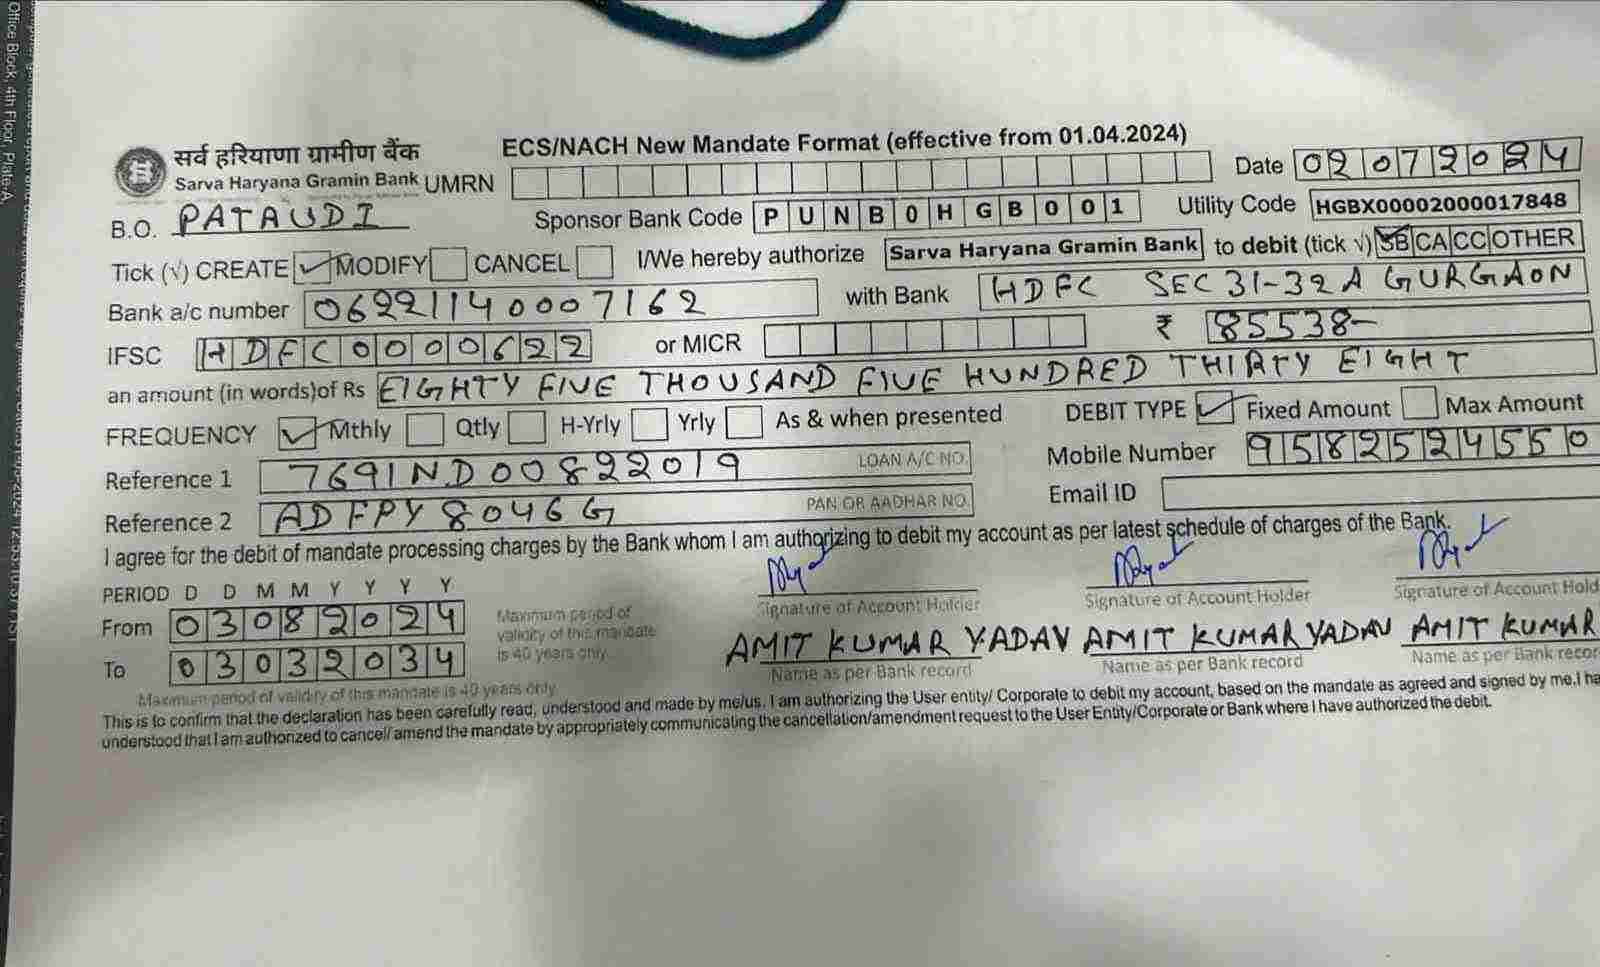 सर्व हरियाणा ग्रामीण बैंक
Sarva Haryana Gramin Bank
ECS/NACH New Mandate Format (effective from 01.04.2024)
UMRN
Date 02072024
B.O. PATAUDI
Sponsor Bank Code PUNB0HGB001
Utility Code HGBX00002000017848
Tick (√) CREATE ✓ MODIFY CANCEL I/We hereby authorize Sarva Haryana Gramin Bank to debit (tick √) SB CA CC OTHER
Bank a/c number 06221140007162 with Bank HDFC SEC 31-32A GURGAON
IFSC HDFC0000622 or MICR ₹ 85538-
an amount (in words)of Rs EIGHTY FIVE THOUSAND FIVE HUNDRED THIRTY EIGHT
FREQUENCY ✓ Mthly Qtly H-Yrly Yrly As & when presented DEBIT TYPE ✓ Fixed Amount Max Amount
Reference 1 7691ND00822019 LOAN A/C NO. Mobile Number 9582524550
Reference 2 ADFPY8046G PAN OR AADHAR NO. Email ID
I agree for the debit of mandate processing charges by the Bank whom I am authorizing to debit my account as per latest schedule of charges of the Bank.
PERIOD D D M M Y Y Y Y
From 03082024
To 03032034
Maximum period of validity of this mandate is 40 years only.
Signature of Account Holder Signature of Account Holder Signature of Account Hold
AMIT KUMAR YADAV AMIT KUMAR YADAV AMIT KUMAR
Name as per Bank record Name as per Bank record Name as per Bank recor
Maximum period of validity of this mandate is 40 years only
This is to confirm that the declaration has been carefully read, understood and made by me/us. I am authorizing the User entity/ Corporate to debit my account, based on the mandate as agreed and signed by me.I ha
understood that I am authorized to cancel/ amend the mandate by appropriately communicating the cancellation/amendment request to the User Entity/Corporate or Bank where I have authorized the debit.
Office Block, 4th Floor, Plate-A,